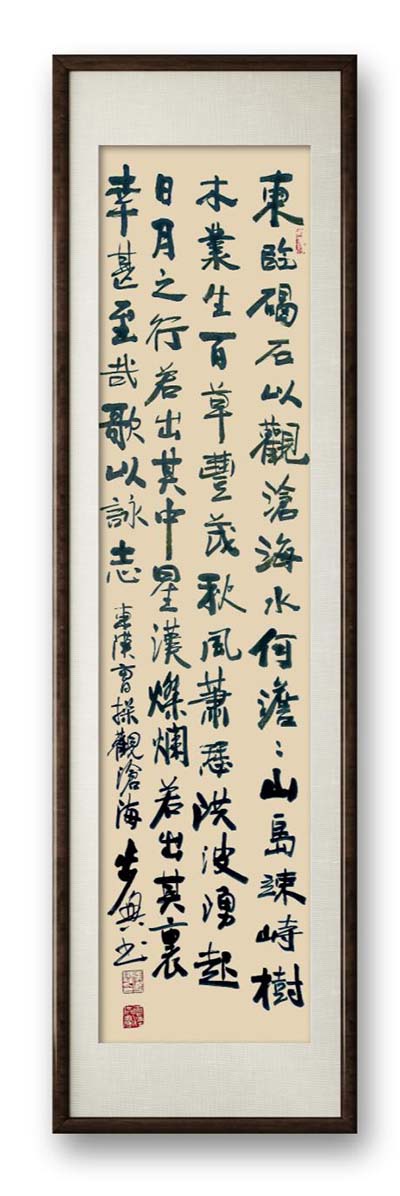 東臨碣石以觀滄海水何澹〻山島竦峙樹
木叢生百草豐茂秋風蕭瑟洪波湧起
日月之行若出其中星漢燦爛若出其裏
幸甚至哉歌以詠志 東漢曹操觀滄海 书